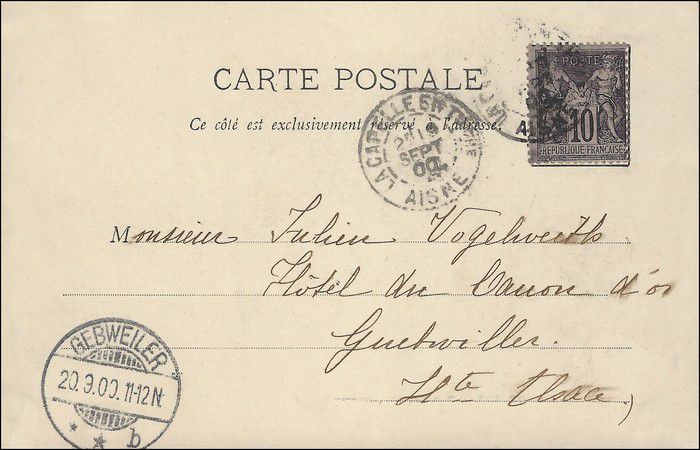 CARTE POSTALE
Ce côté est exclusivement réservé à l'adresse.
POSTE
10
REPUBLIQUE FRANÇAISE
AISNE
LA CAPELLE EN
SEPT
00
AISNE
Monsieur Julien Vogelweith
Hôtel du Canon d'or
Guebwiller.
Hte Alsace
GEBWEILER
20.9.00.11-12N.
b